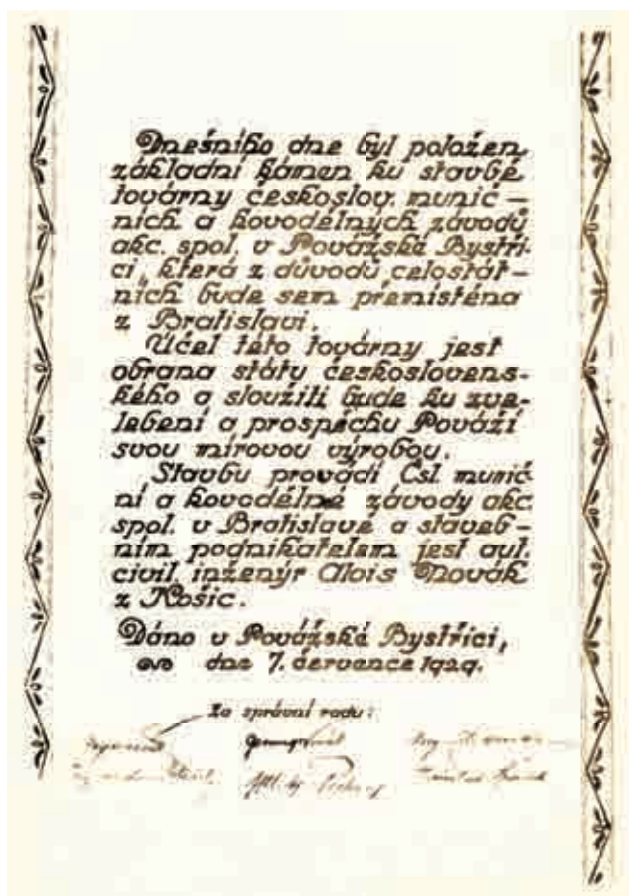 Dnešního dne byl položen
základní kámen ku stavbě
továrny českoslov. munič-
ních a kovodělných závodů
akc. spol. v Považské Bystři-
ci, která z důvodů celostát-
ních bude sem přemístěna
z Bratislavi.
Účel této továrny jest
obrana státu českosloven-
ského a sloužiti bude ku zve-
lebení a prospěchu Považí
svou mírovou výrobou.
Stavbu provádí Čsl. munič-
ní a kovodělné závody akc.
spol. v Bratislavě a staveb-
ním podnikatelem jest aut.
civil. inženýr Alois Novák
z Košic.
Dáno v Považské Bystřici,
dne 7. července 1929.
Za správní radu: